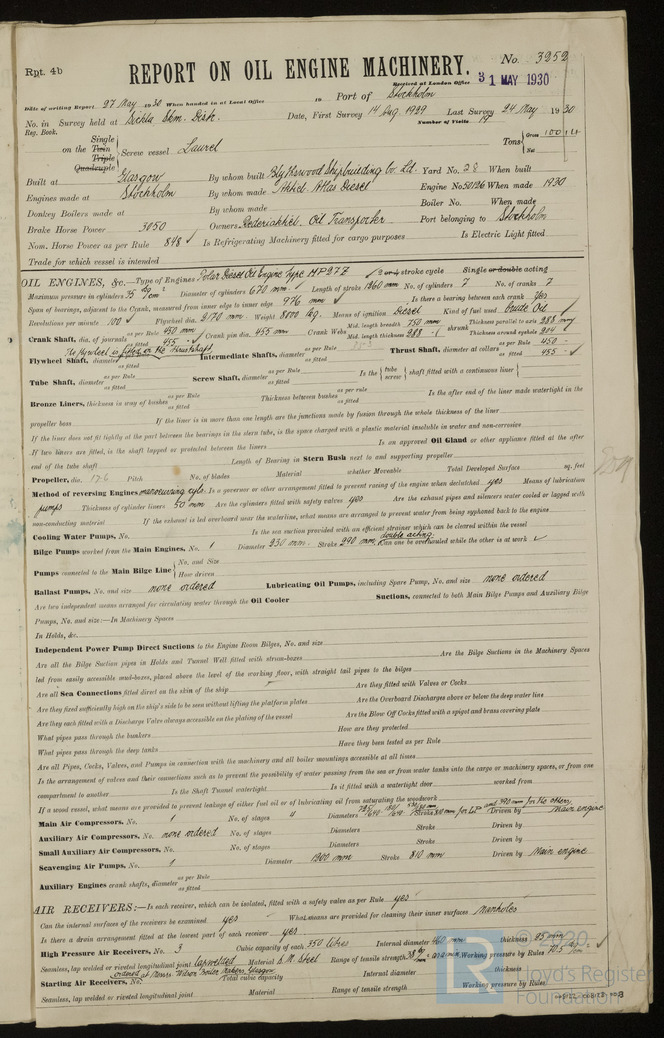 Rpt. 4b
REPORT ON OIL ENGINE MACHINERY.
No. 3252
Received at London Office 31 MAY 1930
Date of writing Report 27 May 1930 When handed in at Local Office 19 Port of Stockholm
No. in Survey held at Sickla Skm. Disk. Date, First Survey 14 Aug. 1929 Last Survey 24 May 1930
Reg. Book. Number of Visits 19
Single
on the Twin Screw vessel Laurel
Triple
Quadruple
Tons Gross
Net
Built at Glasgow By whom built Blythswood Shipbuilding Co. Ld. Yard No. 28 When built
Engines made at Stockholm By whom made Aktieb. Atlas Diesel Engine No. 50126 When made 1930
Donkey Boilers made at By whom made Boiler No. When made
Brake Horse Power 3050 Owners Rederiaktieb. Oil Transporter Port belonging to Stockholm
Nom. Horse Power as per Rule 848 Is Refrigerating Machinery fitted for cargo purposes Is Electric Light fitted
Trade for which vessel is intended
OIL ENGINES, &c.—Type of Engines Polar Diesel Oil Engine Type MP97Z 2 or 4 stroke cycle Single or double acting
Maximum pressure in cylinders 35 kg/cm² Diameter of cylinders 670 mm. Length of stroke 1260 mm No. of cylinders 7 No. of cranks 7
Span of bearings, adjacent to the Crank, measured from inner edge to inner edge 976 mm Is there a bearing between each crank Yes
Revolutions per minute 100 Flywheel dia. 2170 mm. Weight 8000 kg. Means of ignition Diesel Kind of fuel used Crude Oil
Crank Shaft, dia. of journals as per Rule 450 mm as fitted 455 Crank pin dia. 455 mm Crank Webs Mid. length breadth 750 mm Mid. length thickness 288 shrunk Thickness parallel to axis 288 mm Thickness around eyehole 204
The flywheel is fitted on the thrustshaft
Flywheel Shaft, diameter as per Rule as fitted Intermediate Shafts, diameter as per Rule as fitted Thrust Shaft, diameter at collars as per Rule 450 as fitted 455
Tube Shaft, diameter as per Rule as fitted Screw Shaft, diameter as per Rule as fitted Is the tube screw shaft fitted with a continuous liner
Bronze Liners, thickness in way of bushes as per Rule as fitted Thickness between bushes as per rule as fitted Is the after end of the liner made watertight in the
propeller boss If the liner is in more than one length are the junctions made by fusion through the whole thickness of the liner
If the liner does not fit tightly at the part between the bearings in the stern tube, is the space charged with a plastic material insoluble in water and non-corrosive
If two liners are fitted, is the shaft lapped or protected between the liners Is an approved Oil Gland or other appliance fitted at the after
end of the tube shaft Length of Bearing in Stern Bush next to and supporting propeller
Propeller, dia. 17-6 Pitch No. of blades Material whether Moveable Total Developed Surface sq. feet
Method of reversing Engines manoeuvring cyl. Is a governor or other arrangement fitted to prevent racing of the engine when declutched yes Means of lubrication
pumps Thickness of cylinder liners 50 mm Are the cylinders fitted with safety valves yes Are the exhaust pipes and silencers water cooled or lagged with
non-conducting material If the exhaust is led overboard near the waterline, what means are arranged to prevent water from being syphoned back to the engine
Cooling Water Pumps, No. Is the sea suction provided with an efficient strainer which can be cleared within the vessel
Bilge Pumps worked from the Main Engines, No. 1 Diameter 230 mm. Stroke 290 mm. double acting. Can one be overhauled while the other is at work
Pumps connected to the Main Bilge Line No. and Size
How driven
Ballast Pumps, No. and size none ordered Lubricating Oil Pumps, including Spare Pump, No. and size none ordered
Are two independent means arranged for circulating water through the Oil Cooler Suctions, connected to both Main Bilge Pumps and Auxiliary Bilge
Pumps, No. and size:—In Machinery Spaces
In Holds, &c.
Independent Power Pump Direct Suctions to the Engine Room Bilges, No. and size
Are all the Bilge Suction pipes in Holds and Tunnel Well fitted with strum-boxes Are the Bilge Suctions in the Machinery Spaces
led from easily accessible mud-boxes, placed above the level of the working floor, with straight tail pipes to the bilges
Are all Sea Connections fitted direct on the skin of the ship Are they fitted with Valves or Cocks
Are they fixed sufficiently high on the ship's side to be seen without lifting the platform plates Are the Overboard Discharges above or below the deep water line
Are they each fitted with a Discharge Valve always accessible on the plating of the vessel Are the Blow Off Cocks fitted with a spigot and brass covering plate
What pipes pass through the bunkers How are they protected
What pipes pass through the deep tanks Have they been tested as per Rule
Are all Pipes, Cocks, Valves, and Pumps in connection with the machinery and all boiler mountings accessible at all times
Is the arrangement of valves and their connections such as to prevent the possibility of water passing from the sea or from water tanks into the cargo or machinery spaces, or from one
compartment to another Is the Shaft Tunnel watertight Is it fitted with a watertight door worked from
If a wood vessel, what means are provided to prevent leakage of either fuel oil or of lubricating oil from saturating the woodwork
Main Air Compressors, No. 1 No. of stages 4 Diameters Stroke for LP and 390 mm for the others Driven by Main engine
Auxiliary Air Compressors, No. none ordered No. of stages Diameters Stroke Driven by
Small Auxiliary Air Compressors, No. No. of stages Diameters Stroke Driven by
Scavenging Air Pumps, No. 1 Diameter 1900 mm Stroke 810 mm Driven by Main engine
Auxiliary Engines crank shafts, diameter as per Rule as fitted
AIR RECEIVERS:—Is each receiver, which can be isolated, fitted with a safety valve as per Rule yes
Can the internal surfaces of the receivers be examined yes What means are provided for cleaning their inner surfaces Manholes
Is there a drain arrangement fitted at the lowest part of each receiver yes
High Pressure Air Receivers, No. 3 Cubic capacity of each 350 litres Internal diameter 460 mm thickness 25 mm
Seamless, lap welded or riveted longitudinal joint lapwelded Material S.M. Steel Range of tensile strength Working pressure by Rules
ordered at Messrs. Wilson Boiler Makers, Glasgow
Starting Air Receivers, No. Total cubic capacity Internal diameter thickness
Seamless, lap welded or riveted longitudinal joint Material Range of tensile strength Working pressure by Rules
© 2020
LR
Lloyd's Register
Foundation